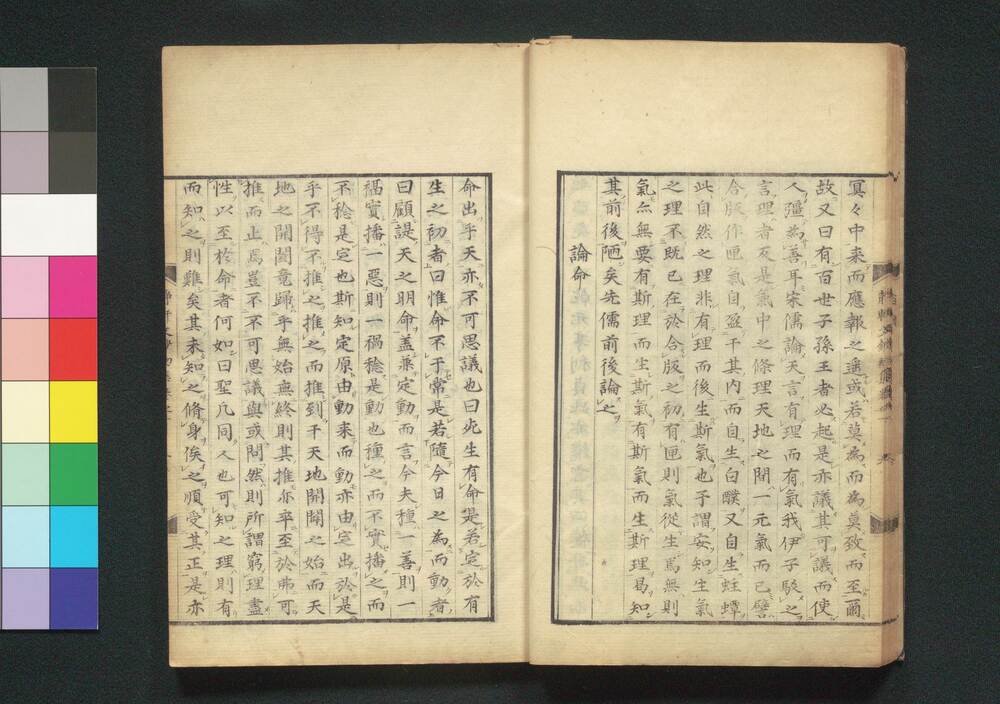 冥々中来而應報之邉或若莫為而為莫致而至爾
故又曰有百世子孫王者必起是亦議其可議而使
人彊為善耳宋儒論天言有理而有氣我伊子駁之
言理者反是氣中之條理天地之間一元氣而已譬
合版作匣氣自盈于其内而自生白醭又自生蛀蟫
此自然之理非有理而後生斯氣也子謂安知生氣
之理不既已在於合版之初有匣則氣從生焉無則
氣亦無要有斯理而生斯氣有斯氣而生斯理曷知
其前後陋矣先儒前後論之
論命
命出乎天亦不可思議也曰死生有命是若定於有
生之初者曰惟命不于常是若隨今日之為而動者
曰顧諟天之明命蓋兼定動而言今夫種一善則一
福實播一惡則一禍稔是動也種之而不實播之而
不稔是定也斯知定原由動来而動亦由定出於是
乎不得不推之推之而推到于天地開闢之始而天
地之開闔竟歸乎無始無終則其推亦卒至於弗可
推而止焉豈不不可思議與或問然則所謂窮理盡
性以至於命者何如曰聖凡同人也可知之理則有
而知之則難矣其未知之脩身俟之順受其正是亦